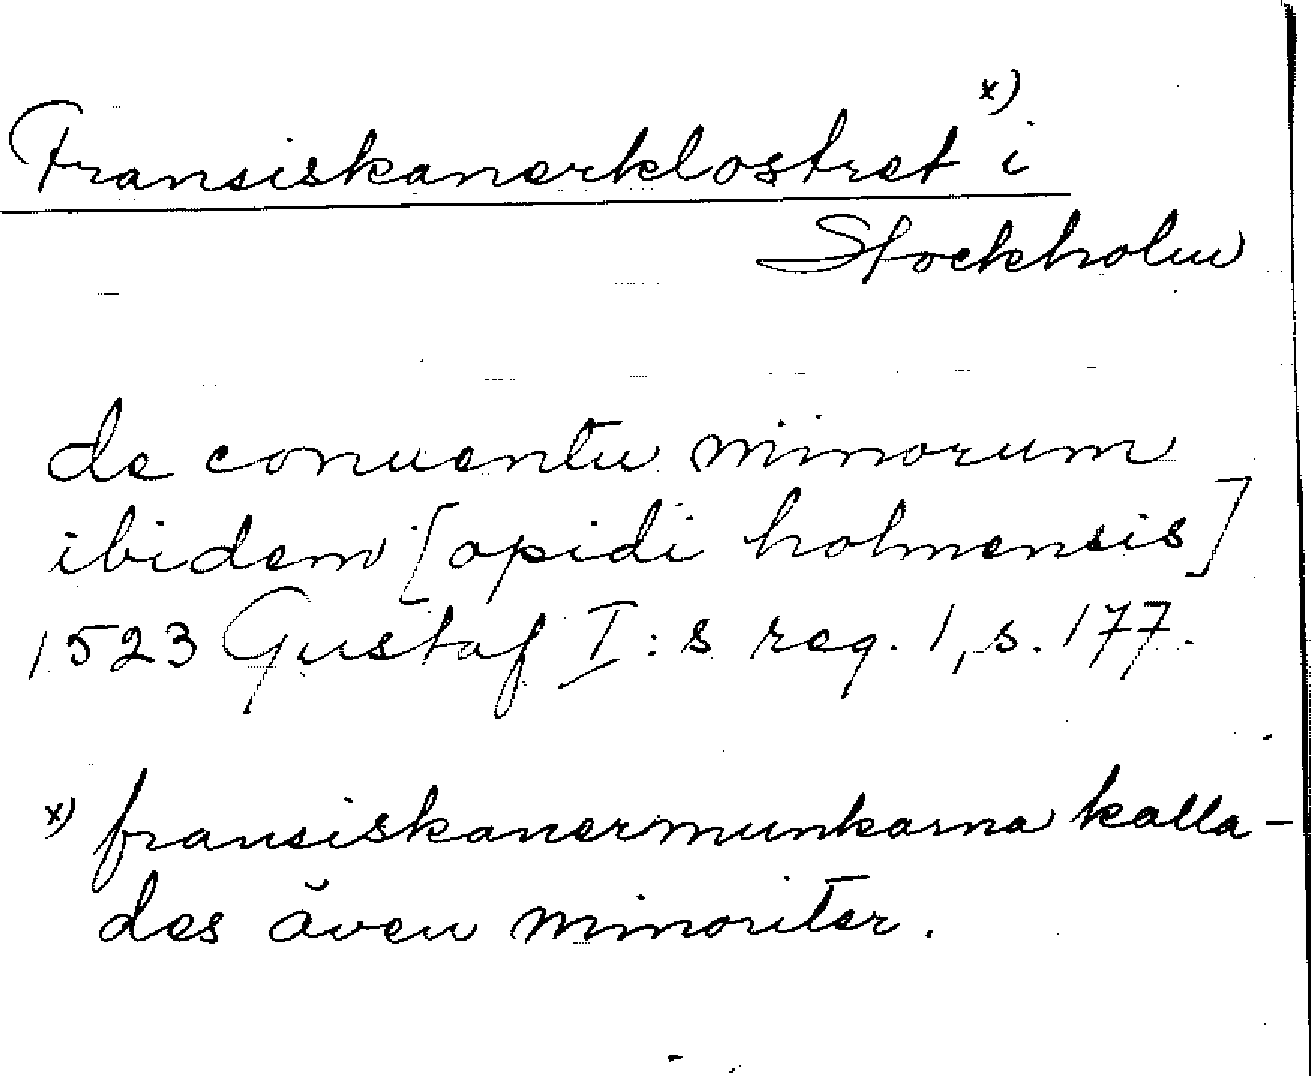 Fransiskanerklostret x) i
Stockholm
de conuentu minorum
ibidem [opidi holmensis]
1523 Gustaf I:s reg. 1, s. 177.
x) fransiskanermunkarna kalla-
des även minoriter.